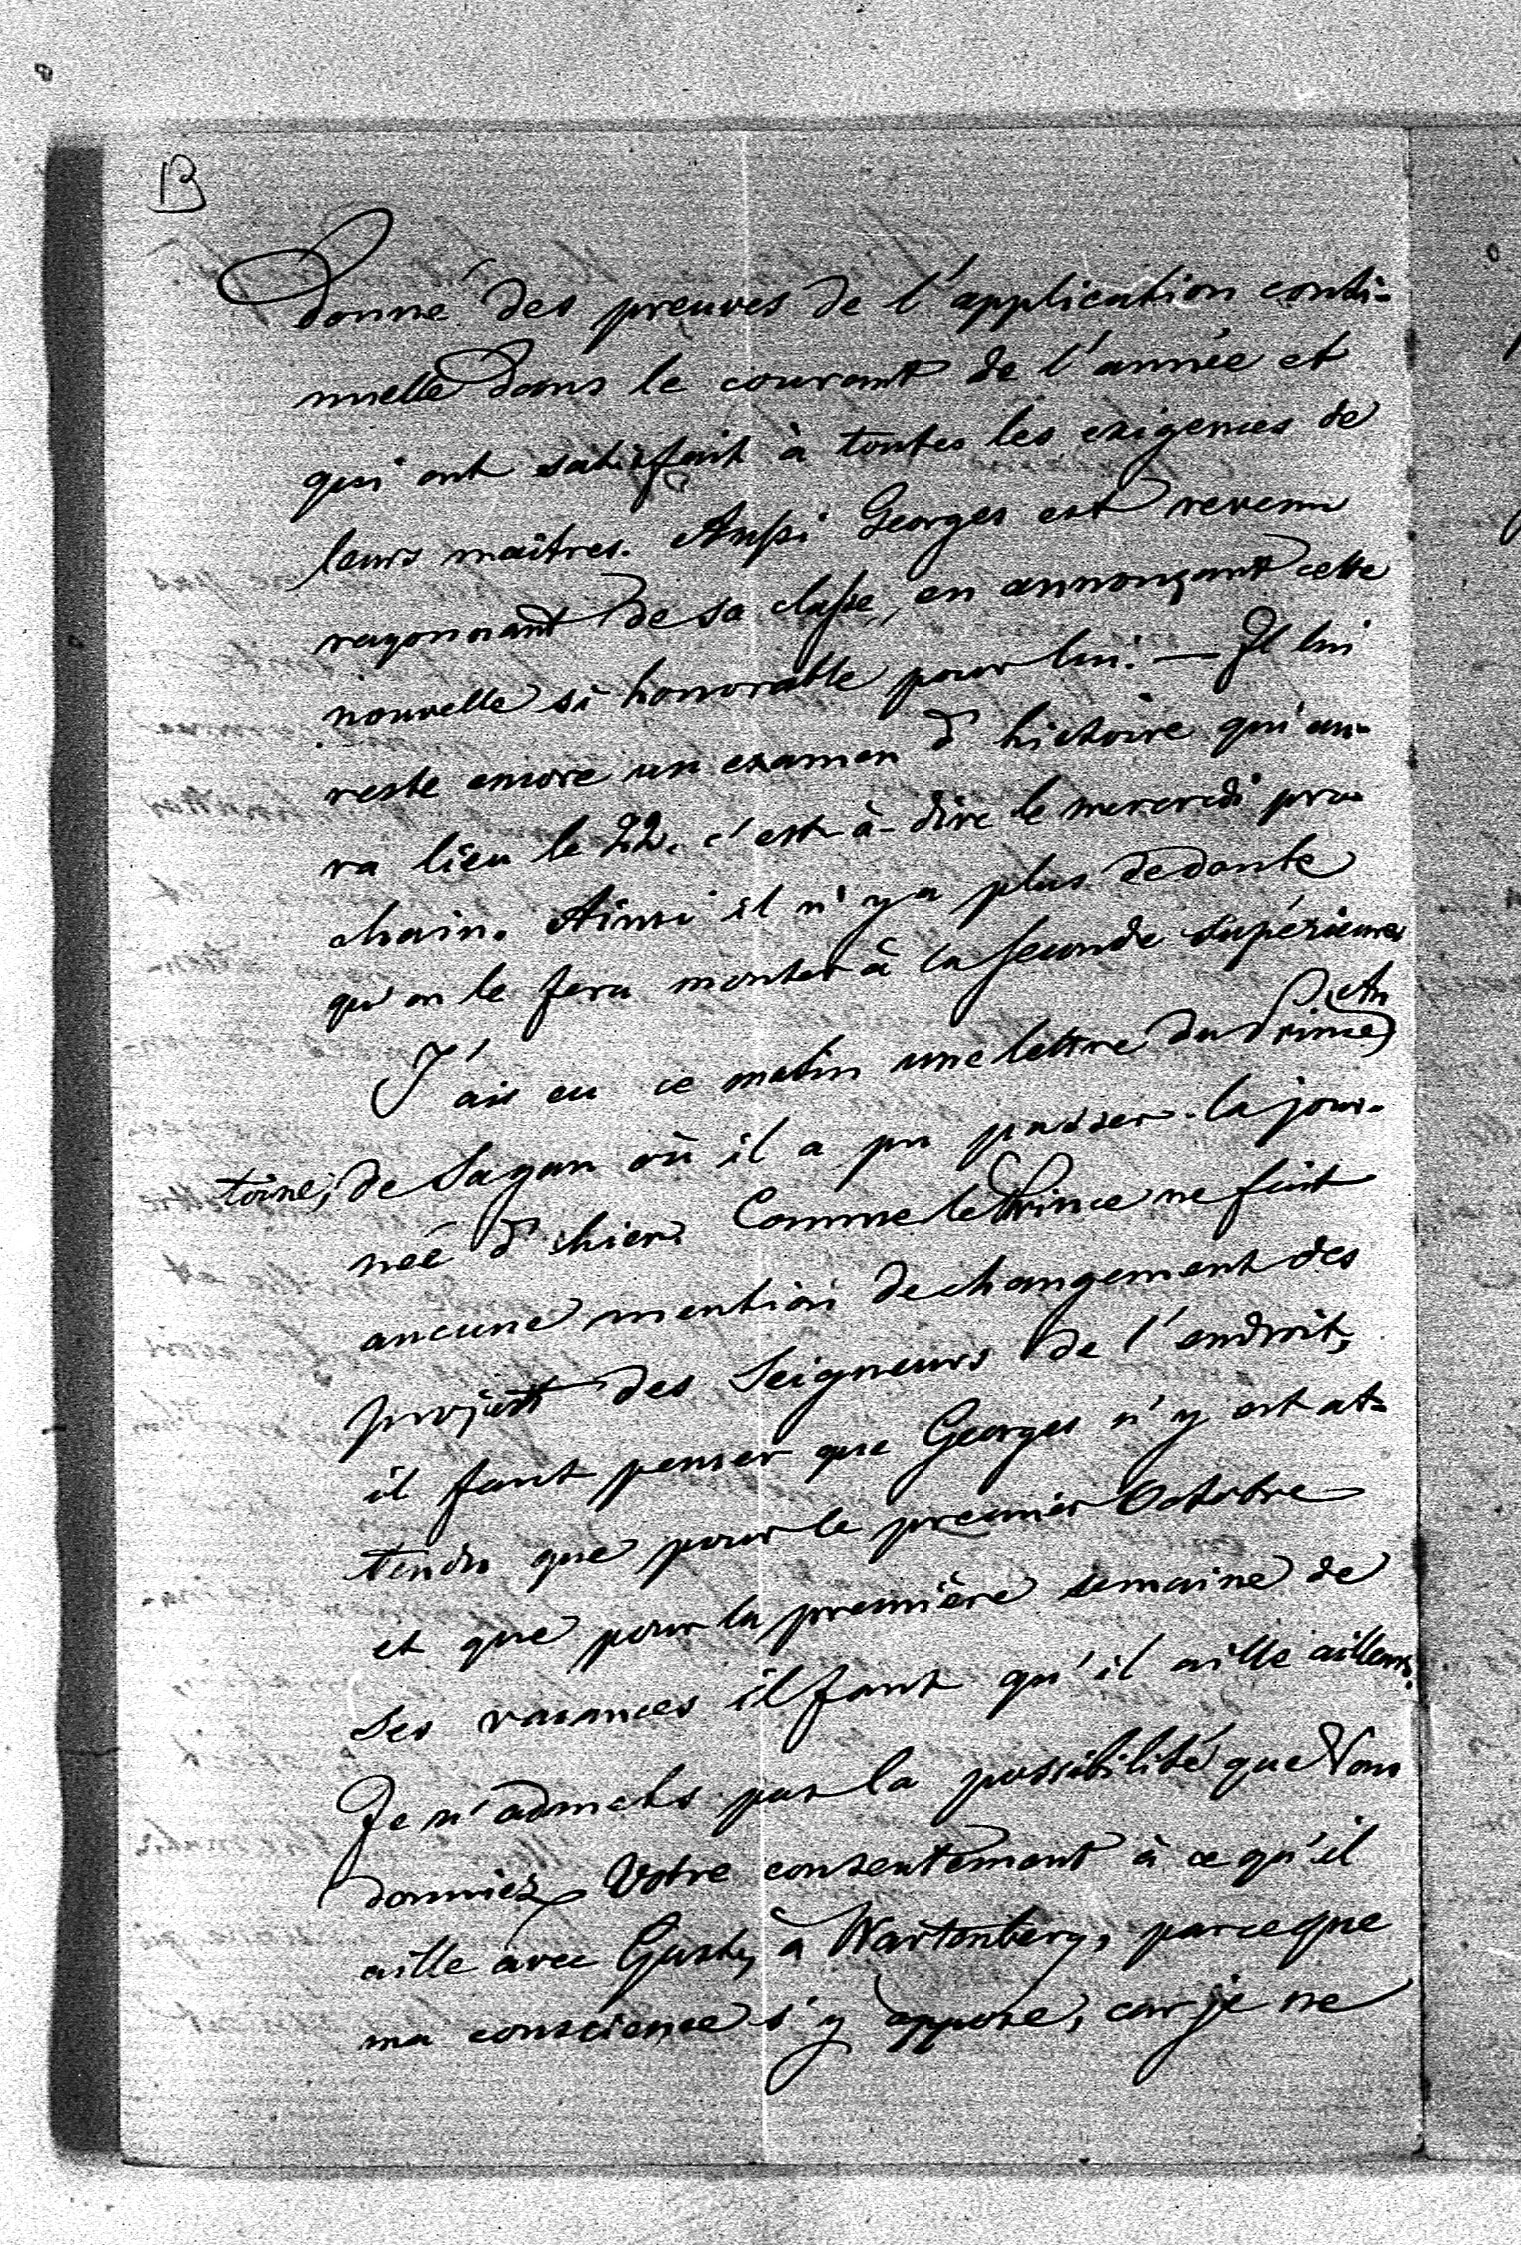 13
donné des preuves de l'application conti-
nuelle dans le courant de l'année et
qui ont satisfait à toutes les exigences de
leurs maîtres. Aussi Georges est revenu
rayonnant de sa classe, en annonçant cette
nouvelle si honorable pour lui. — Il lui
reste encore un examen d'histoire qui au-
ra lieu le 22. c'est-à-dire le mercredi pro-
chain. Ainsi il n'y a plus de doute
qu'on le fera monter à la seconde supérieure
J'ais eu ce matin une lettre du Prince An
toine, de Sagan où il a pu passer la jour-
née d'hier. Comme le Prince ne fait
aucune mention de changement des
projets des Seigneurs de l'endroit,
il faut penser que Georges n'y est at-
tendu que pour le premier Octobre
et que pour la première semaine de
ses vacances il faut qu'il aille ailleurs.
Je n'admets pas la possibilité que Vous
donniez Votre consentement à ce qu'il
aille avec Gusty à Wartenberg, parceque
ma conscience s'y oppose, car je ne